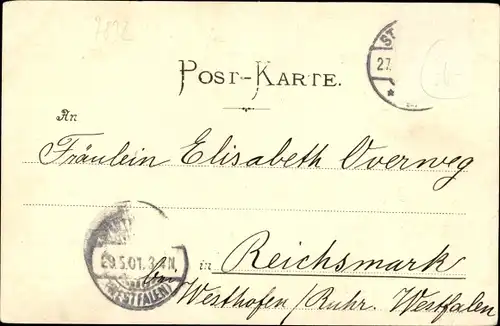 7892
ST
27.
POST-KARTE.
An
Fräulein Elisabeth Overweg
29.5.01. 3-4N.
(WESTFALEN)
in Reichsmark
bei Westhofen/Ruhr. Westfalen